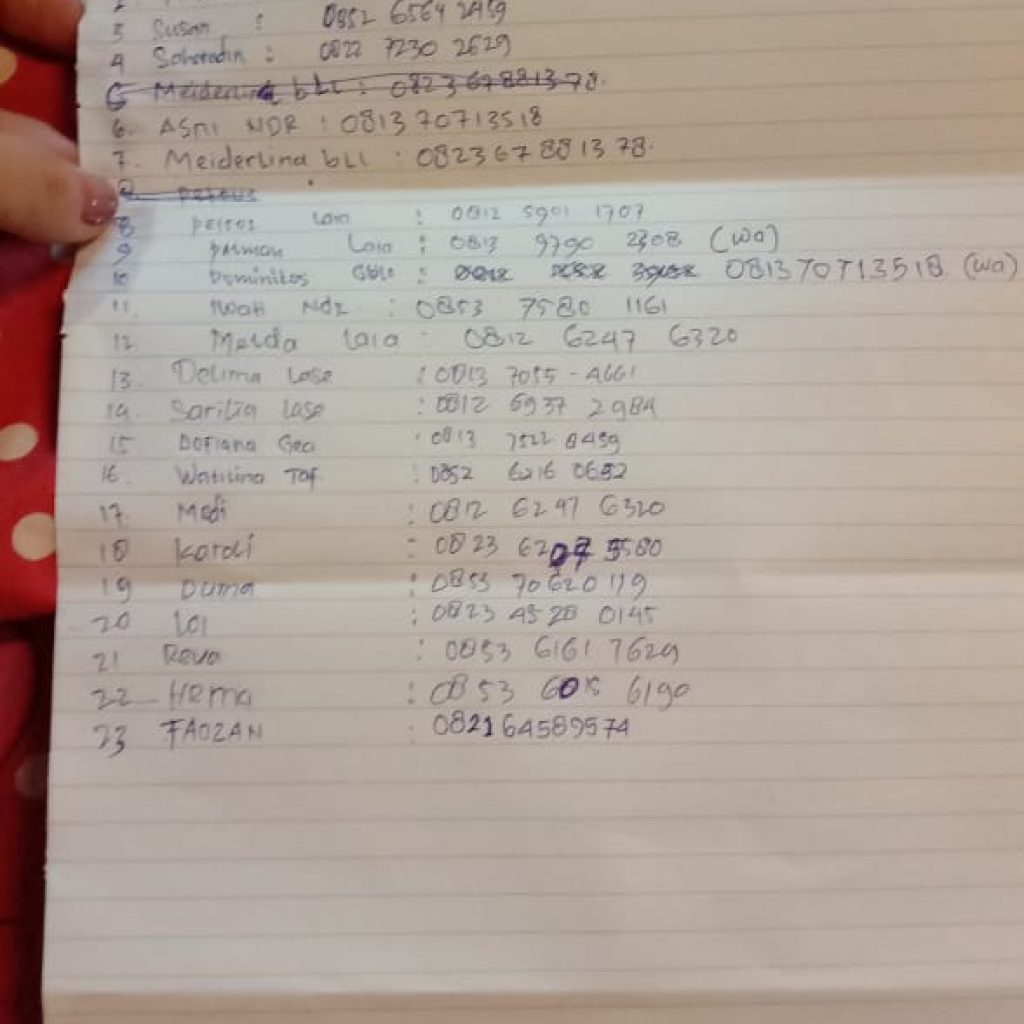 3 Susan : 0852 6564 2459
4 Sahrudin : 0822 7230 2629
6 Meiderlina bLL : 082367881378.
6. ASni NDR : 081370713518
7. Meiderlina bLL : 082367881378.
8 petrus
8 petrus Laia : 0812 5901 1707
9 parman Laia : 0813 9790 2308 (wa)
10 Dominikos Gulo : 081370713518 (wa)
11. Ndr : 0853 7580 1161
12 Melda Laia : 0812 6247 6320
13. Delima Lase : 0813 7055-4661
14. Sarilia Lase : 0812 6937 2984
15 Dofiana Gea : 0813 7522 8459
16. Watilina Taf. : 0852 6216 0652
17. Medi : 0812 6247 6320
18 Kardi : 0823 6207 5580
19 Duma : 0853 70620119
20 Loi : 0823 4520 0145
21 Reva : 0853 6161 7629
22 Herna : 0853 6015 6190
23 FAOZAN : 082164589574